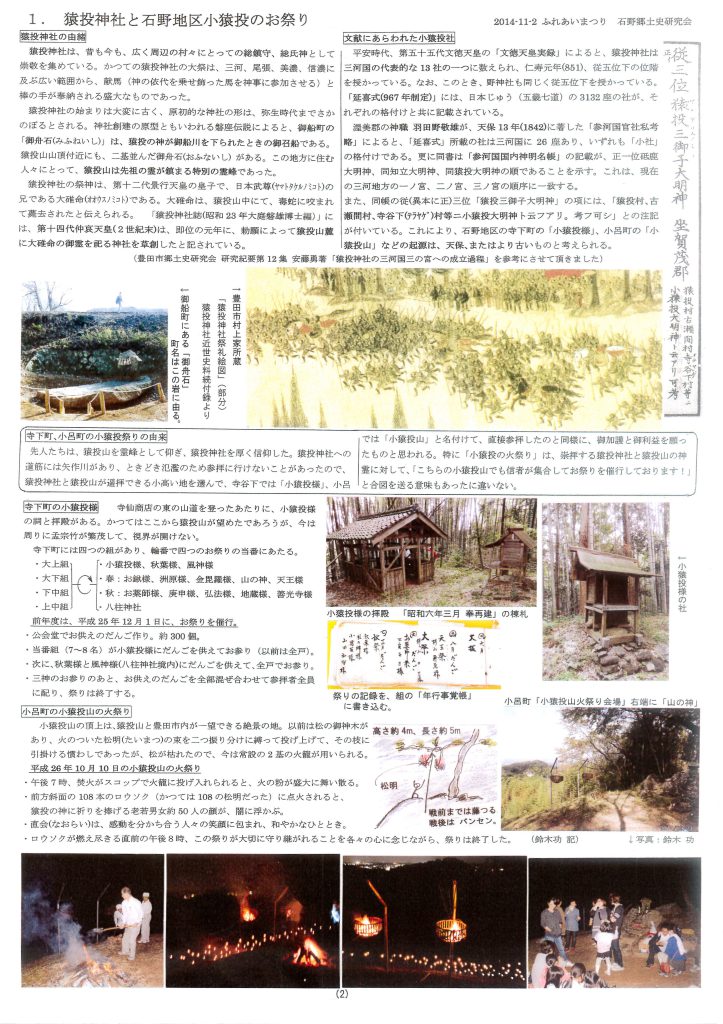 １． 猿投神社と石野地区小猿投のお祭り
2014-11-2 ふれあいまつり 石野郷土史研究会
猿投神社の由緒
猿投神社は、昔も今も、広く周辺の村々にとっての総鎮守、総氏神として
崇敬を集めている。かつての猿投神社の大祭は、三河、尾張、美濃、信濃に
及ぶ広い範囲から、献馬（神の依代を乗せ飾った馬を神事に参加させる）と
棒の手が奉納される盛大なものであった。
猿投神社の始まりは大変に古く、原初的な神社の形は、弥生時代までさか
のぼるとされる。神社創建の原型ともいわれる磐座伝説によると、御船町の
「御舟石(みふねいし)」は、猿投の神が御船川を下られたときの御召船である。
猿投山山頂付近にも、二基並んだ御舟石(おふないし)がある。この地方に住む
人々にとって、猿投山は先祖の霊が鎮まる特別の霊峰であった。
猿投神社の祭神は、第十二代景行天皇の皇子で、日本武尊(ヤマトタケルノミコト)の
兄である大碓命(オオウスノミコト)である。大碓命は、猿投山中にて、毒蛇に咬まれ
て薨去されたと伝えられる。 「猿投神社誌(昭和23年大庭磐雄博士編)」に
は、第十四代仲哀天皇(２世紀末)は、即位の元年に、勅願によって猿投山麓
に大碓命の御霊を祀る神社を草創したと記されている。
文献にあらわれた小猿投社
平安時代、第五十五代文徳天皇の「文徳天皇実録」によると、猿投神社は
三河国の代表的な13社の一つに数えられ、仁寿元年(851)、従五位下の位階
を授かっている。なお、このとき、野神社も同じく従五位下を授かっている。
「延喜式(967年制定)」には、日本じゅう（五畿七道）の3132座の社が、そ
れぞれの格付けと共に記載されている。
渥美郡の神職 羽田野敬雄が、天保13年(1842)に著した「参河国官社私考
略」によると、「延喜式」所載の社は三河国に26座あり、いずれも「小社」
の格付けである。更に同書は「参河国国内神明名帳」の記載が、正一位砥鹿
大明神、同知立大明神、同猿投大明神の順であることを示す。これは、現在
の三河地方の一ノ宮、二ノ宮、三ノ宮の順序に一致する。
また、同帳の従(異本に正)三位「猿投三御子大明神」の項には、「猿投村、古
瀬間村、寺谷下(テラヤゲ)村等ニ小猿投大明神ト云フアリ。考フ可シ」との注記
が付いている。これにより、石野地区の寺下町の「小猿投様」、小呂町の「小
猿投山」などの起源は、天保、またはより古いものと考えられる。
（豊田市郷土史研究会 研究紀要第12集 安藤勇著「猿投神社の三河国三の宮への成立過程」を参考にさせて頂きました）
従三位 猿投三御子大明神 坐賀茂郡
正
猿投村古瀬間村寺谷下村等ニ
小猿投大明神ト云アリ可考
→豊田市村上家所蔵
「猿投神社祭礼絵図」（部分）
猿投神社近世史料続付録より
←御船町にある「御舟石」
町名はこの岩に由る。
寺下町、小呂町の小猿投祭りの由来
先人たちは、猿投山を霊峰として仰ぎ、猿投神社を厚く信仰した。猿投神社への
道筋には矢作川があり、ときどき氾濫のため参拝に行けないことがあったので、
猿投神社と猿投山が遥拝できる小高い地を選んで、寺谷下では「小猿投様」、小呂
では「小猿投山」と名付けて、直接参拝したのと同様に、御加護と御利益を願っ
たものと思われる。特に「小猿投の火祭り」は、崇拝する猿投神社と猿投山の神
霊に対して、「こちらの小猿投山でも信者が集合してお祭りを催行しております！」
と合図を送る意味もあったに違いない。
寺下町の小猿投様 寺仙商店の東の山道を登ったあたりに、小猿投様
の祠と拝殿がある。かつてはここから猿投山が望めたであろうが、今は
周りに孟宗竹が繁茂して、視界が開けない。
寺下町には四つの組があり、輪番で四つのお祭りの当番にあたる。
・大上組 ・小猿投様、秋葉様、風神様
・大下組 ・春：お鍬様、洲原様、金毘羅様、山の神、天王様
・下中組 ・秋：お薬師様、庚申様、弘法様、地蔵様、善光寺様
・上中組 ・八柱神社
前年度は、平成25年12月1日に、お祭りを催行。
・公会堂でお供えのだんご作り。約300個。
・当番組（7～8名）が小猿投様にだんごを供えてお参り（以前は全戸）。
・次に、秋葉様と風神様(八柱神社境内)にだんごを供えて、全戸でお参り。
・三神のお参りのあと、お供えのだんごを全部混ぜ合わせて参拝者全員
に配り、祭りは終了する。
小猿投様の拝殿 「昭和六年三月 奉再建」の棟札
←小猿投様の社
祭りの記録を、組の「年行事覚帳」
に書き込む。
小呂町の小猿投山の火祭り
小猿投山の頂上は、猿投山と豊田市内が一望できる絶景の地。以前は松の御神木が
あり、火のついた松明(たいまつ)の束を二つ振り分けに縛って投げ上げて、その枝に
引掛ける慣わしであったが、松が枯れたので、今は常設の２基の火籠が用いられる。
平成26年10月10日の小猿投山の火祭り
・午後７時、焚火がスコップで火籠に投げ入れられると、火の粉が盛大に舞い散る。
・前方斜面の108本のロウソク（かつては108の松明だった）に点火されると、
猿投の神に祈りを捧げる老若男女約50人の顔が、闇に浮かぶ。
・直会(なおらい)は、感動を分かち合う人々の笑顔に包まれ、和やかなひととき。
・ロウソクが燃え尽きる直前の午後８時、この祭りが大切に守り継がれることを各々の心に念じながら、祭りは終了した。 （鈴木功 記）
高さ約4m、長さ約5m
松明
戦前までは藤つる
戦後は バンセン。
小呂町「小猿投山火祭り会場」右端に「山の神」
↓写真：鈴木 功
(2)